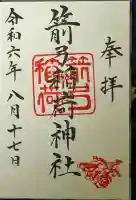 奉拝
箭弓稲荷神社
令和六年八月十七日
箭弓
稲荷